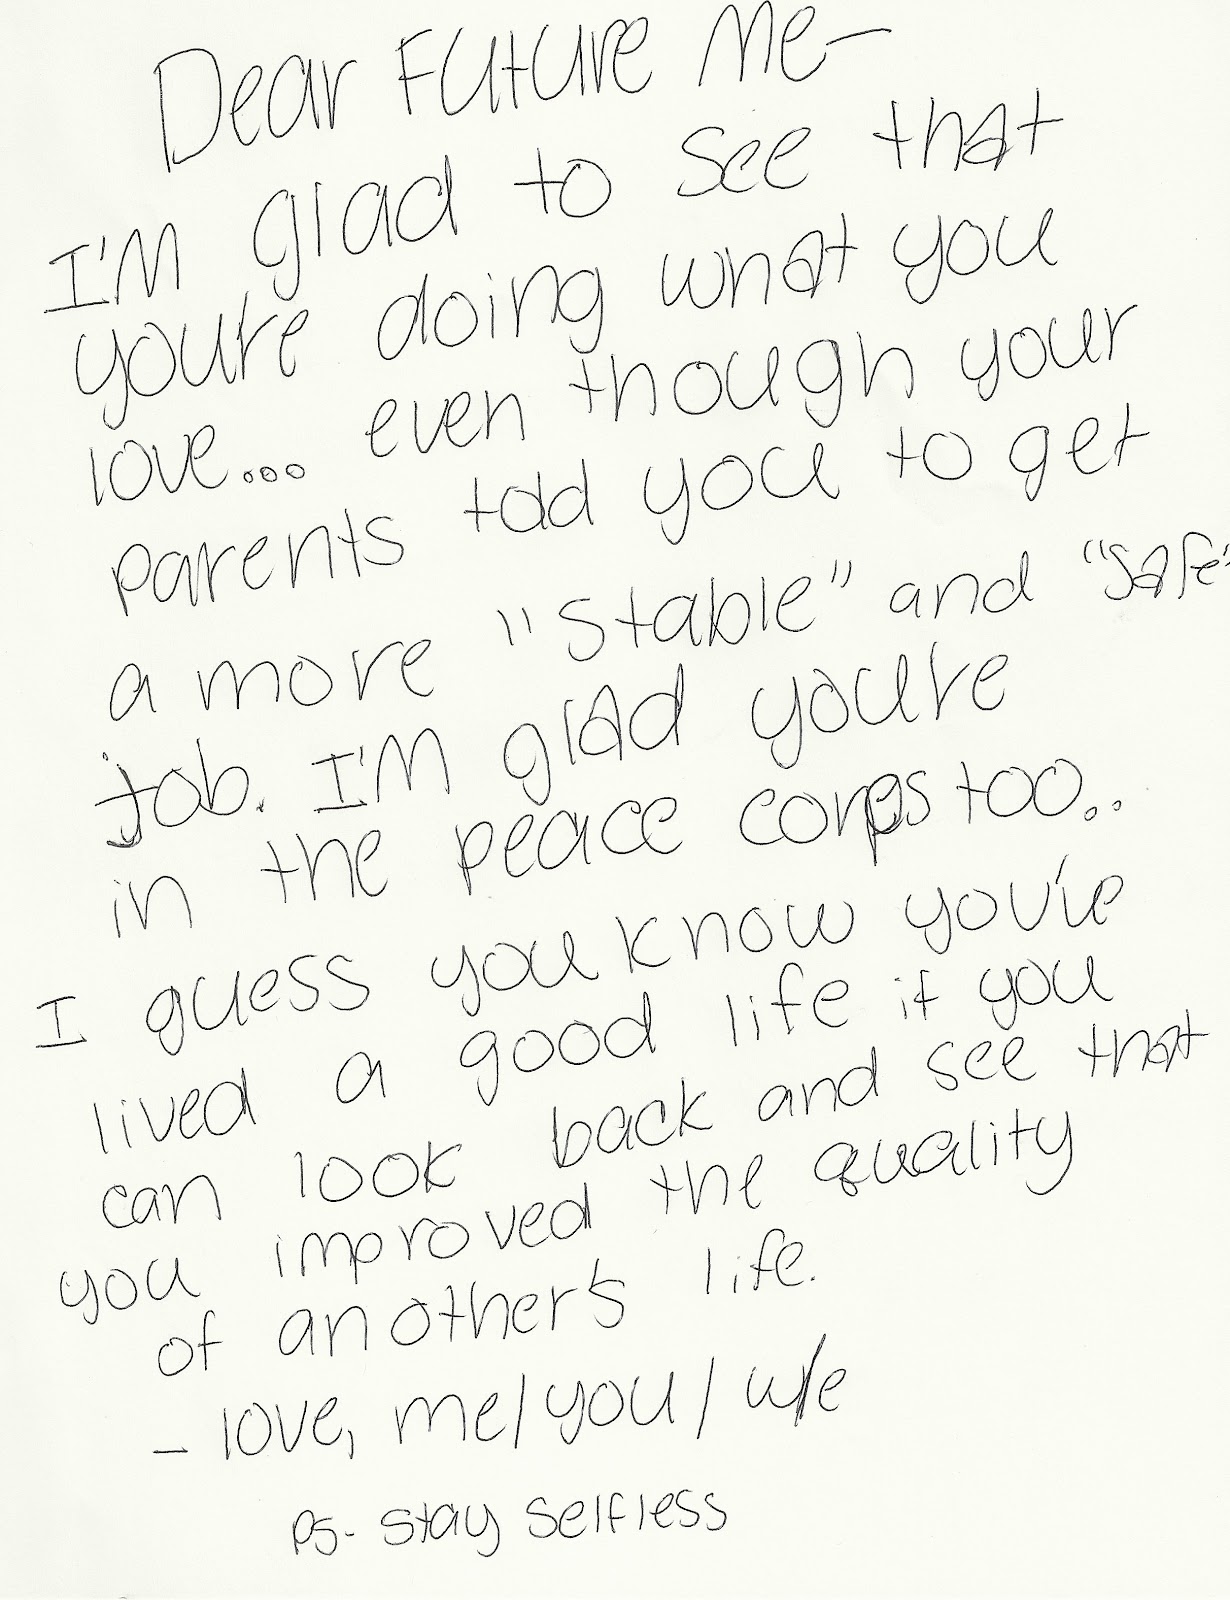 Dear Future Me-
I'm glad to see that
you're doing what you
love... even though your
parents told you to get
a more "stable" and "safe"
job. I'm glad you're
in the peace corps too..
I guess you know you've
lived a good life if you
can look back and see that
you improved the quality
of another's life.
- love, me/you/we
ps- stay selfless